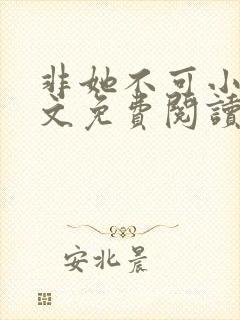 非她不可小
文免費閱讀
安北晨